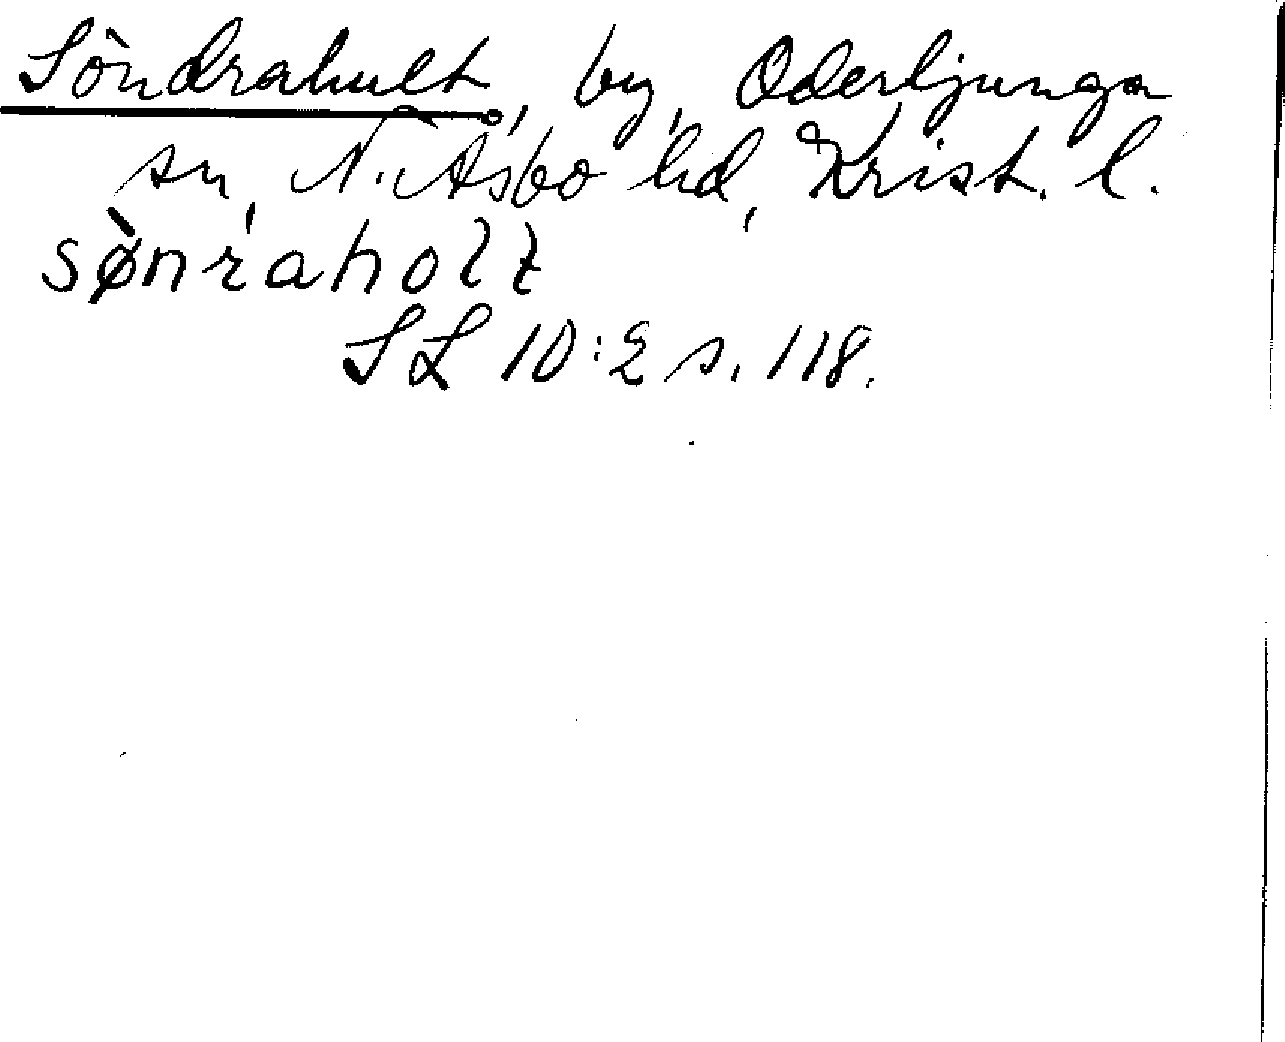 Söndrahult, by, Oderljunga
sn, N. Åsbo hd, Krist. l.
sø̀nraholt
SL 10:2 s. 118.